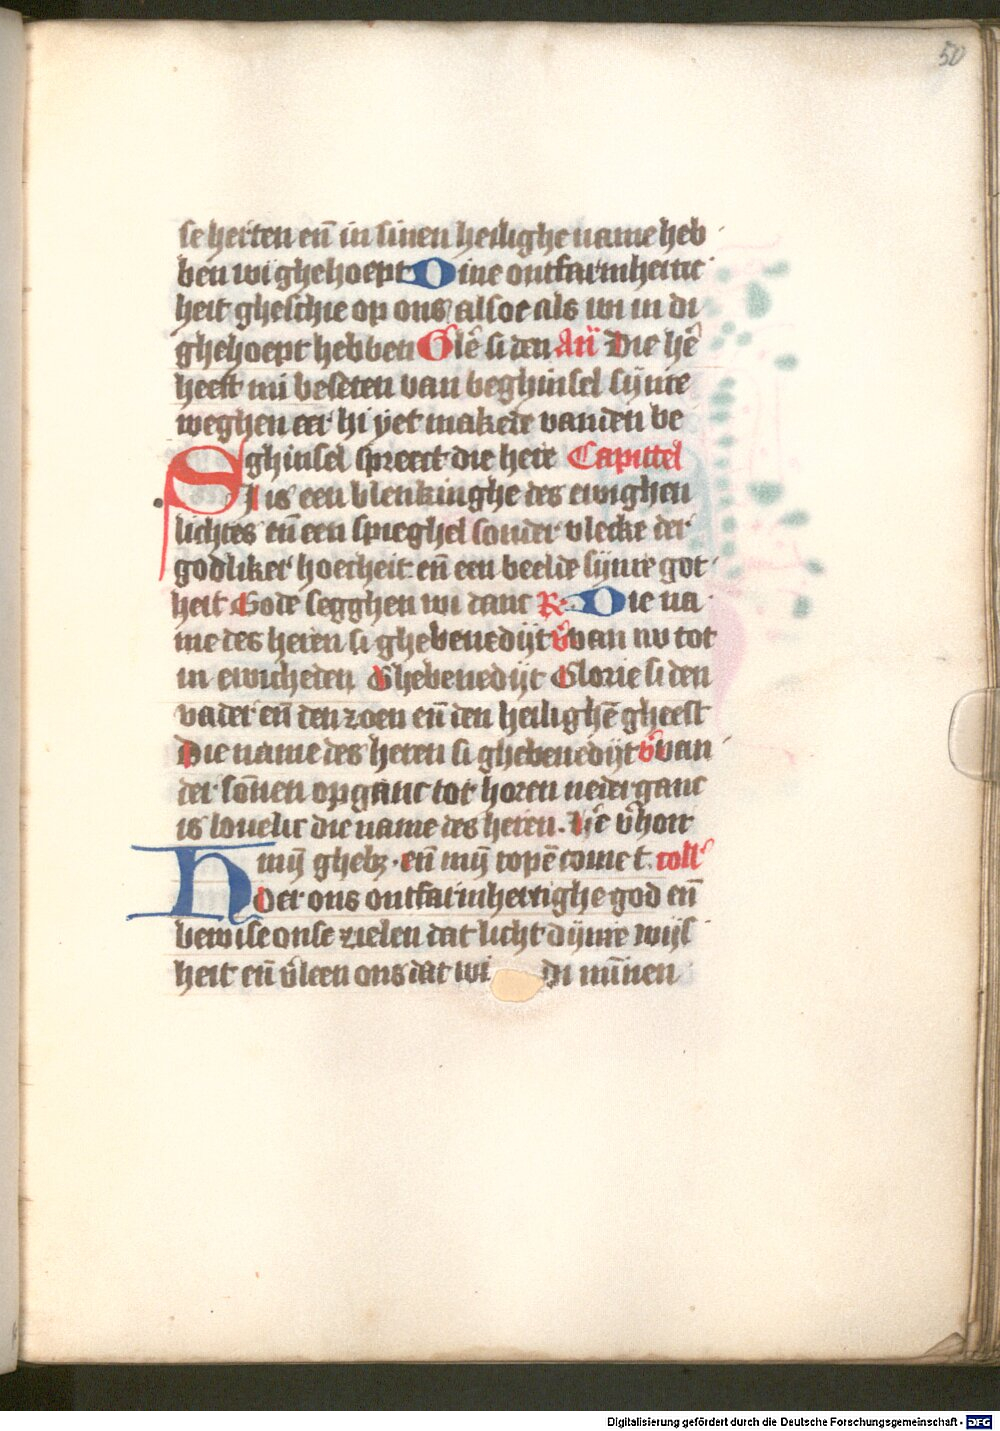 50
se herten en̄ in sinen heilighe name heb
ben wi ghehoept Dine ontfarmhertic
heit gheschie op ons alsoe als wi in di
ghehoept hebben Glē si den An̄ Die hē
heeft mi beseten van beghinsel sijnre
weghen eer hi yet makede van den be
ghinsel spreect die here Capittel
SI is een blenkinghe des ewighen
lichtes en̄ een spieghel sonder vlecke der
godliker hoecheit en̄ een beelde sijnre got
heit Gode segghen wi danc R Die na
me des heren si ghebenedijt v̄ van nv tot
in ewicheden Ghebenedijt Glorie si den
vader en̄ den zoen en̄ den heilighē gheest
Die name des heren si ghebenedijt v̄ van
der sōnen opganc tot horen nederganc
is louelic die name des heren. Hē v̄hoer
mijn ghebz en̄ mijn ropē come t. coll'
HOer ons ontfarmhertighe god en̄
bewise onse zielen dat licht dijnre wijs
heit en̄ v̄leen ons dat wi di minnen
Digitalisierung gefördert durch die Deutsche Forschungsgemeinschaft - DFG